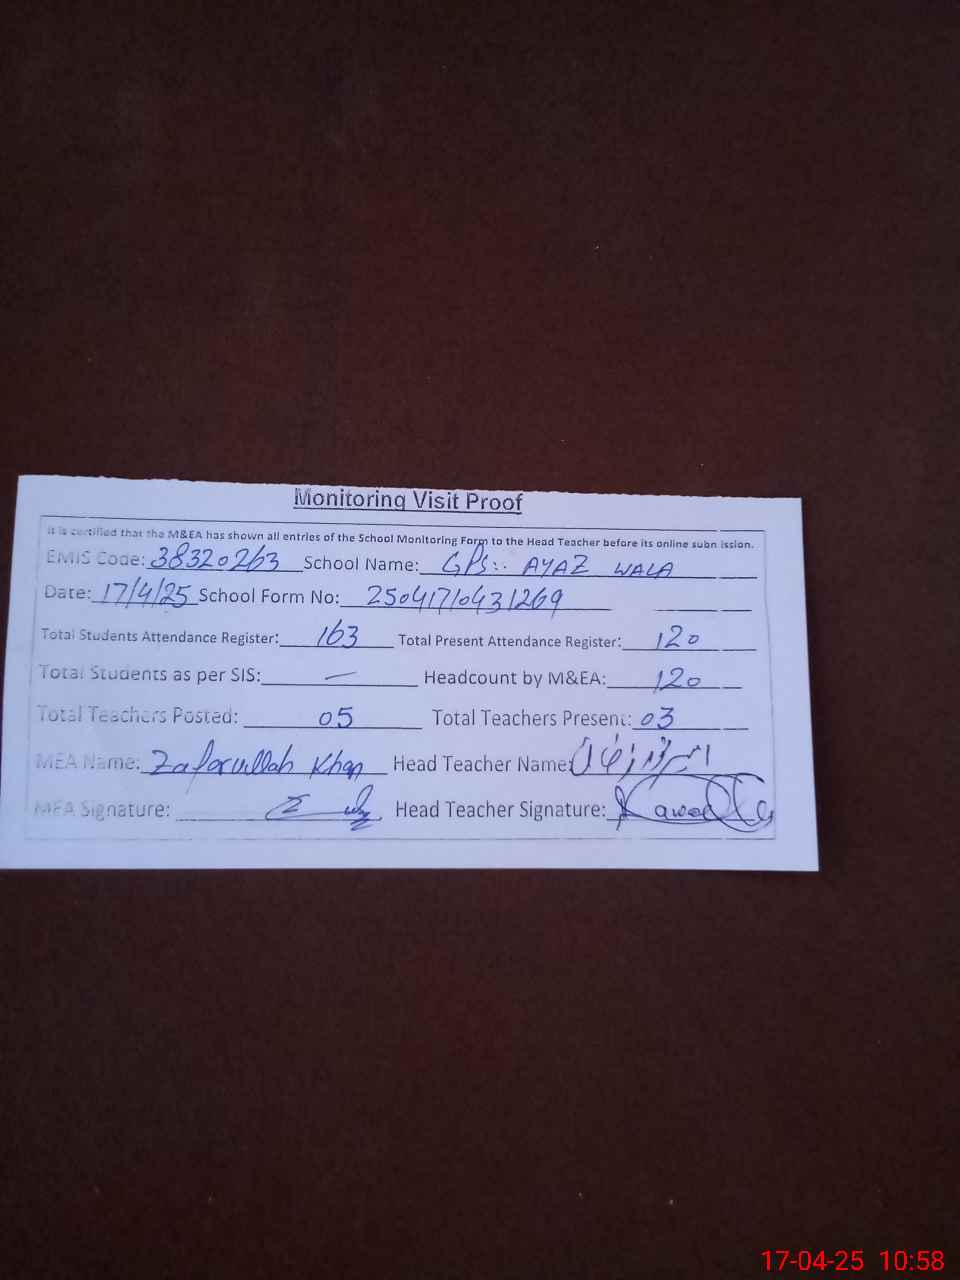 Monitoring Visit Proof
It is certified that the M&EA has shown all entries of the School Monitoring Form to the Head Teacher before its online subn ission.
EMIS Code: 38320263 School Name: GPS:. AYAZ WALA
Date: 17/4/25 School Form No: 25041710431269
Total Students Attendance Register: 163 Total Present Attendance Register: 120
Total Students as per SIS: — Headcount by M&EA: 120
Total Teachers Posted: 05 Total Teachers Present: 03
MEA Name: Zafarullah Khan Head Teacher Name:
MEA Signature: Head Teacher Signature:
17-04-25 10:58